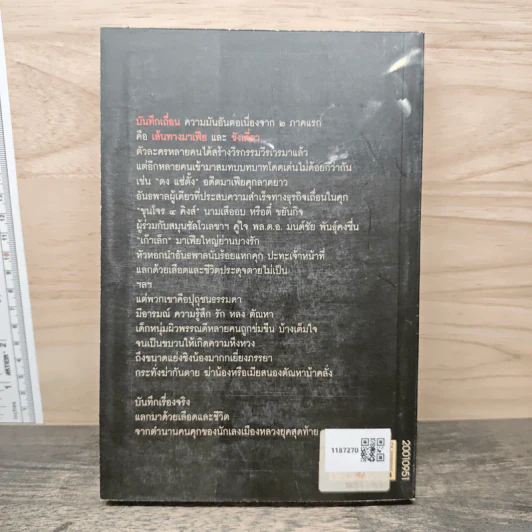 บันทึกเถื่อน ความมันอันต่อเนื่องจาก ๒ ภาคแรก
คือ เส้นทางมาเฟีย และ ขังเดี่ยว
ตัวละครหลายคนได้สร้างวีรกรรมวีรเวรมาแล้ว
แต่อีกหลายคนเข้ามาสมทบบทบาทโดดเด่นไม่ด้อยกว่ากัน
เช่น "ตง แซ่ตั้ง" อดีตมาเฟียคุกลาดยาว
อันธพาลผู้เดียวที่ประสบความสำเร็จทางธุรกิจเถื่อนในคุก
"ขุนโจร ๔ คิงส์" นามเสืออบ หรือตี๋ ขยันกิจ
ผู้ร่วมกับสมุนซัลโวเลขาฯ คู่ใจ พล.ต.อ. มนต์ชัย พันธุ์คงชื่น
"เก๊าเล็ก" มาเฟียใหญ่ย่านบางรัก
หัวหอกนำอันธพาลนับร้อยแหกคุก ปะทะเจ้าหน้าที่
แลกด้วยเลือดและชีวิตประดุจตายไม่เป็น
ฯลฯ
แต่พวกเขาคือปุถุชนธรรมดา
มีอารมณ์ ความรู้สึก รัก หลง ตัณหา
เด็กหนุ่มผิวพรรณดีหลายคนถูกข่มขืน บ้างเต็มใจ
จนเป็นชนวนให้เกิดความหึงหวง
ถึงขนาดแย่งชิงน้องมากกเยี่ยงภรรยา
กระทั่งฆ่ากันตาย ฆ่าน้องหรือเมียสนองตัณหาบ้าคลั่ง
บันทึกเรื่องจริง
แลกมาด้วยเลือดและชีวิต
จากตำนานคนคุกของนักเลงเมืองหลวงยุคสุดท้าย
1187270
20010951